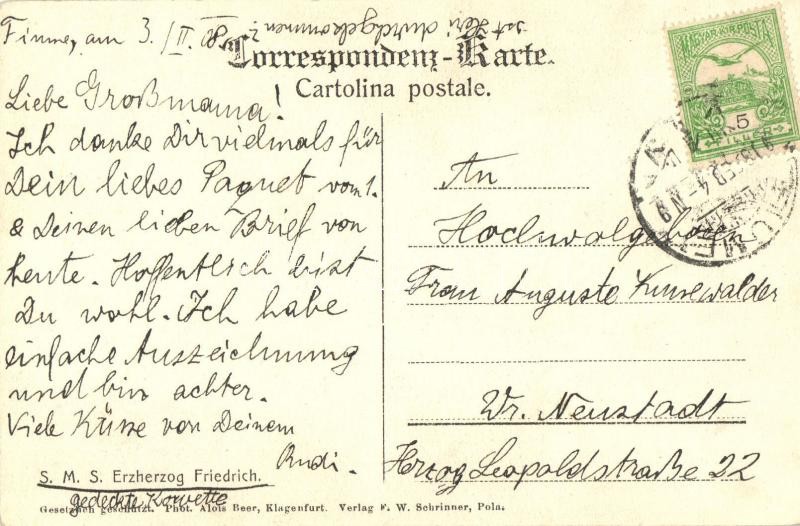 Fiume, am 3./II. 08.
ist Heri durchgekommen?
Correspondenz-Karte.
Cartolina postale.
Liebe Großmama!
Ich danke Dir vielmals für
Dein liebes Paquet vom 1.
& Deinen lieben Brief von
heute. Hoffentlich bist
Du wohl. Ich habe
einfache Auszeichnung
und bin achter.
Viele Küsse von Deinem
Rudi.
S. M. S. Erzherzog Friedrich.
gedeckte Korvette
Gesetzlich geschützt. Phot. Alois Beer, Klagenfurt. Verlag F. W. Schrinner, Pola.
MAGYAR KIR. POSTA
5
FILLER
FIUME
An
Hochwolgeboren
Frau Auguste Kunewalder
Wr. Neustadt
Herzog Leopoldstraße 22